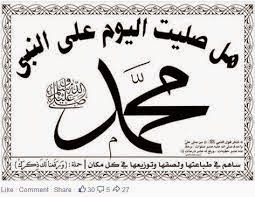 هل صليت اليوم على النبي
محمد
صلى الله عليه وسلم
ساهم في طباعتها ولصقها وتوزيعها في كل مكان
حملة : (ورفعنا لك ذكرك)
Like · Comment · Share · 30 5 27